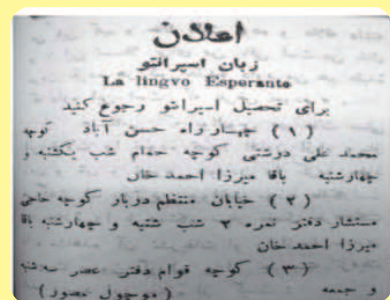 اعلان
زبان اسپرانتو
La lingvo Esperanto
برای تحصیل اسپرانتو رجوع کنید
(۱) چهار راه حسن آباد کوچه
محمد علی درشتی کوچه حمام شب یکشنبه و
چهارشنبه باقا میرزا احمد خان
(۲) خیابان منتظم دربار کوچه حاجی
مستشار دفتر نمره ۲ شب شنبه و چهارشنبه باقا
میرزا احمد خان
(۳) کوچه قوام دفتر عصر سه شنبه
و جمعه (موچول مصور)